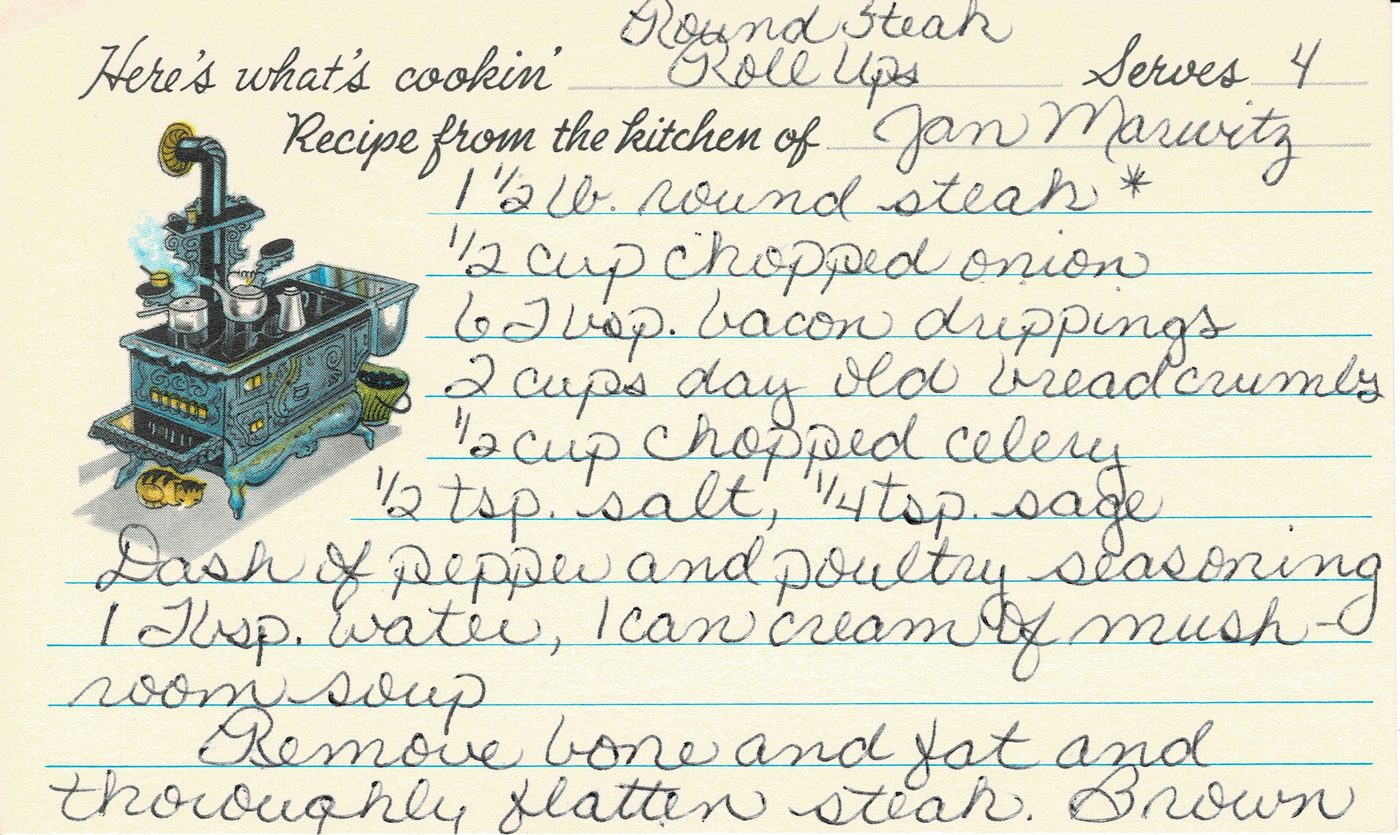 Round Steak
Here's what's cookin' Roll Ups Serves 4
Recipe from the kitchen of Jan Marwitz
1 1/2 lb. round steak *
1/2 cup chopped onion
6 Tbsp. bacon drippings
2 cups day old breadcrumbs
1/2 cup chopped celery
1/2 tsp. salt, 1/4 tsp. sage
Dash of pepper and poultry seasoning
1 Tbsp. water, 1 can cream of mush-
room soup
Remove bone and fat and
thoroughly flatten steak. Brown